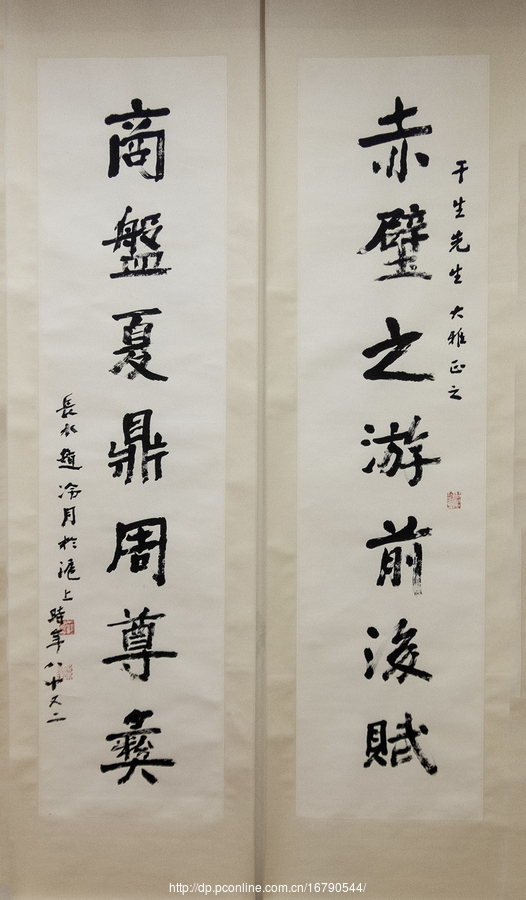 干生先生大雅正之
赤壁之游前後賦
商盤夏鼎周尊彝
長水趙冷月於滬上時年八十又二
http://dp.pconline.com.cn/16790544/